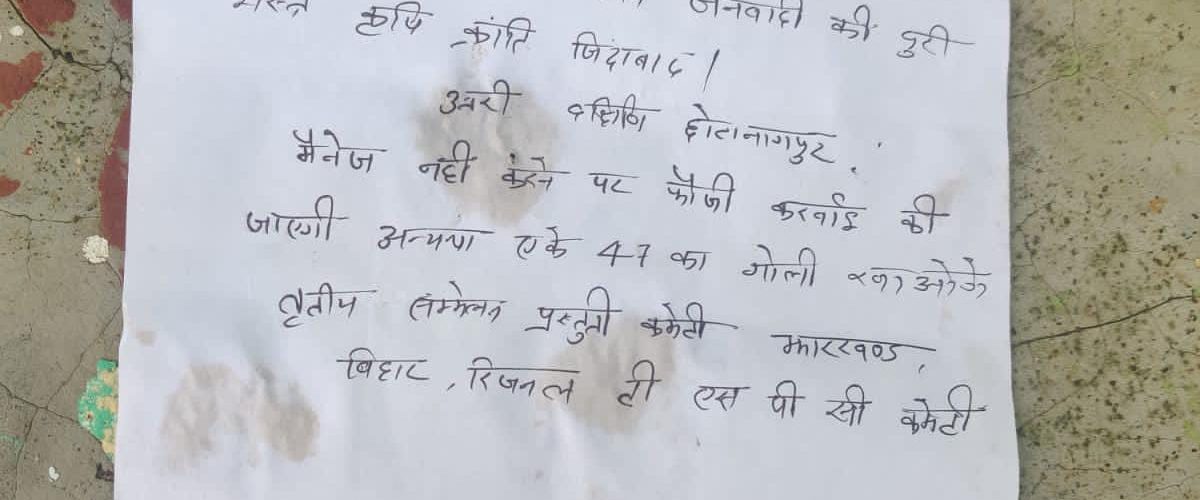 जनवादी की पुरी
कृषि क्रांति जिंदाबाद।
उत्तरी दक्षिणि छोटानागपुर.
मैनेज नही करने पर फौजी करवाई की
जाएगी अन्यथा एके 47 का गोली खाओके
तृतीय सम्मेलन प्रस्तुती कमेटी झारखण्ड,
बिहार, रिजनल टी एस पी सी कमेटी